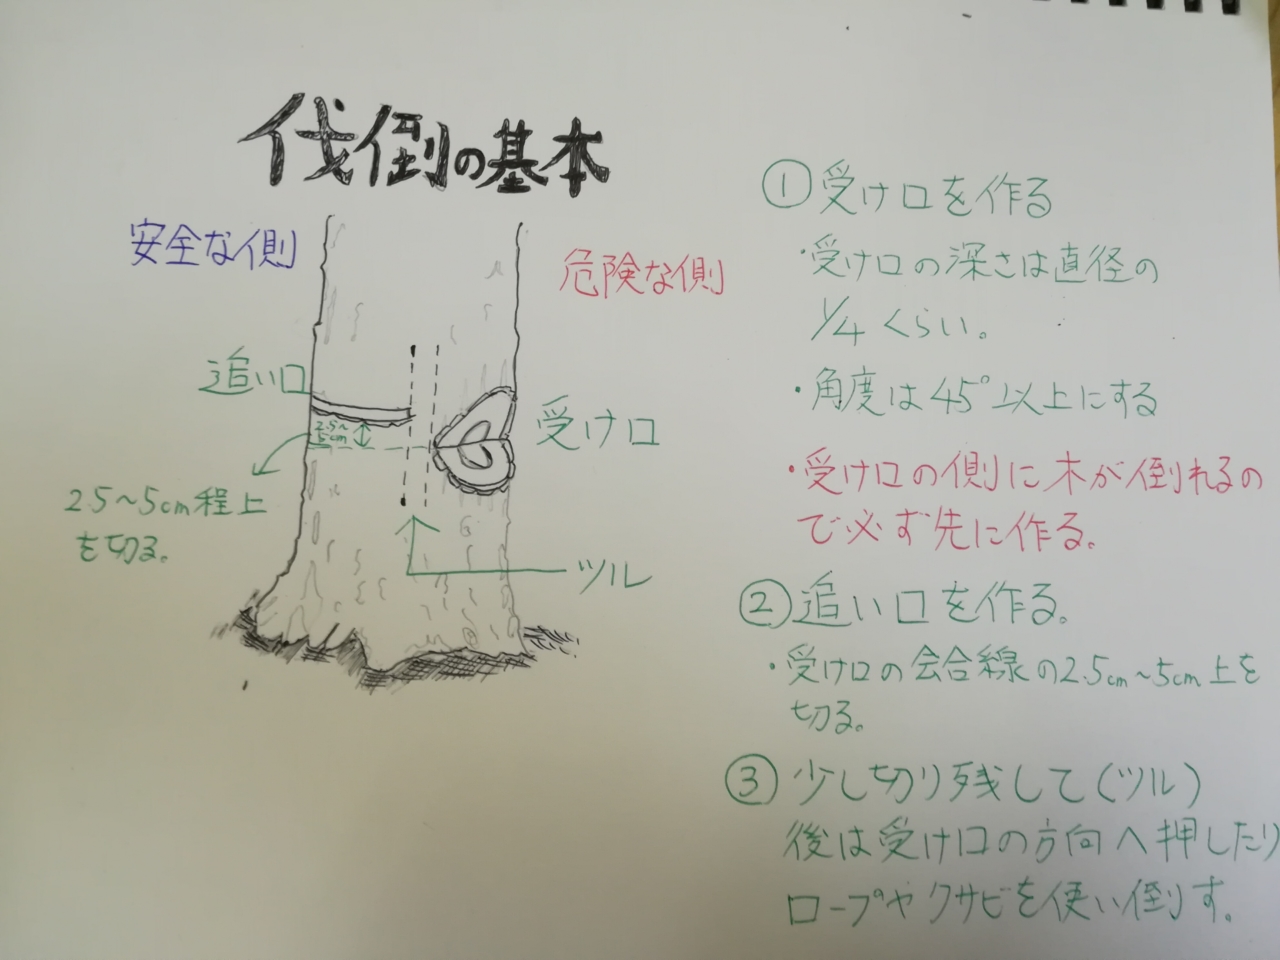 伐倒の基本
安全な側
危険な側
追い口
受け口
2.5~
5cm
2.5~5cm程上
を切る。
ツル
①受け口を作る
・受け口の深さは直径の
1/4くらい。
・角度は45°以上にする
・受け口の側に木が倒れるの
で必ず先に作る。
②追い口を作る。
・受け口の会合線の2.5cm~5cm上を
切る。
③少し切り残して(ツル)
後は受け口の方向へ押したり
ロープやクサビを使い倒す。